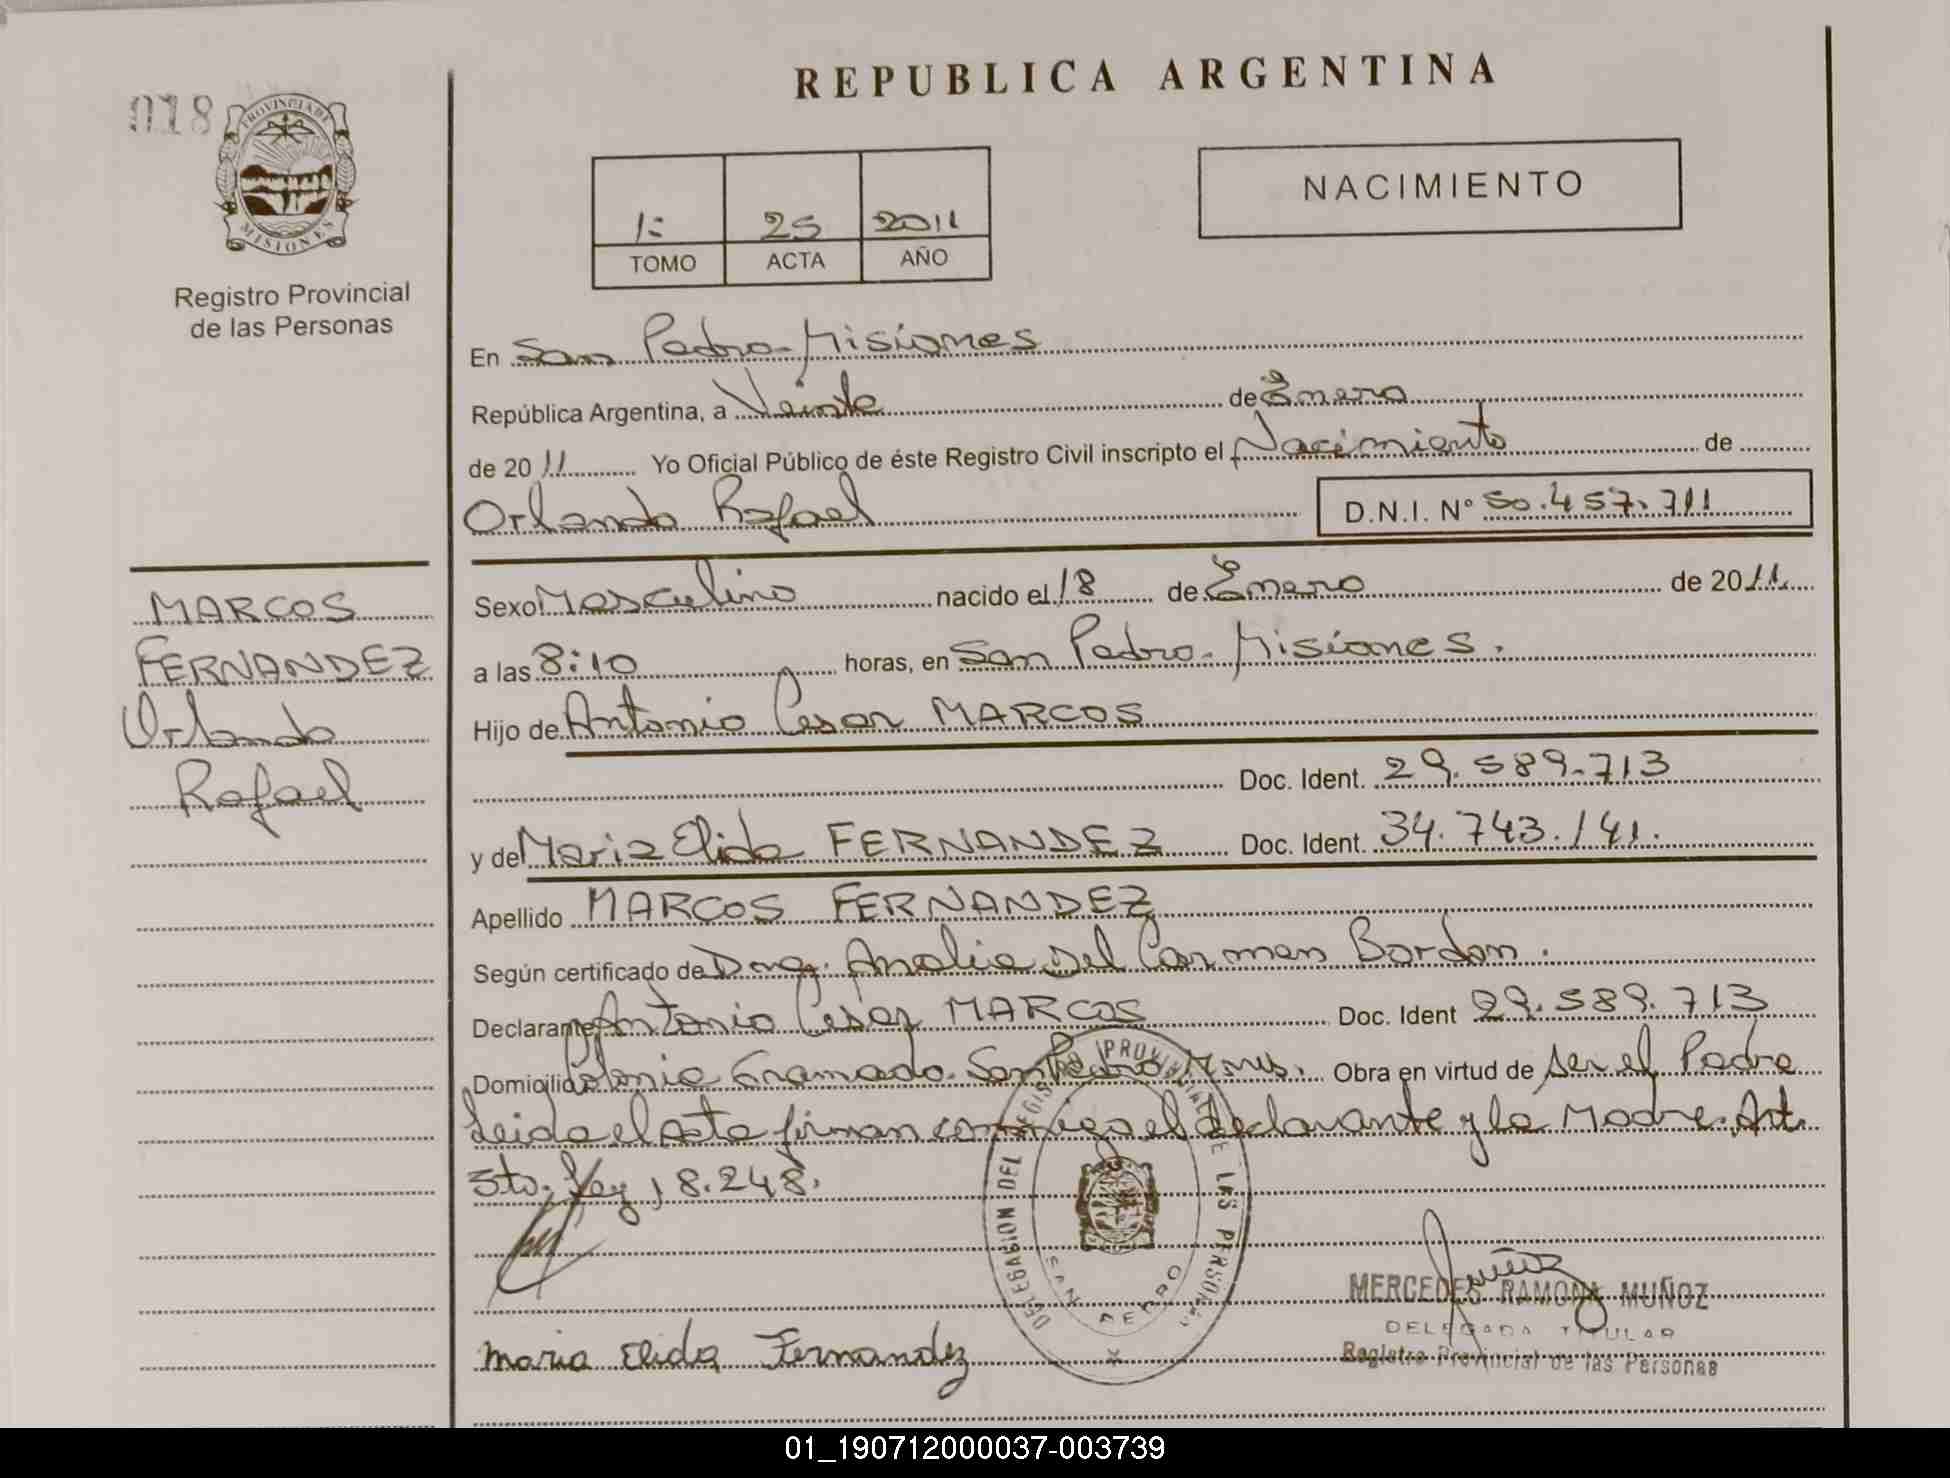 REPUBLICA ARGENTINA
018
PROVINCIA DE
MISIONES
Registro Provincial
de las Personas
NACIMIENTO
1: 25 2011
TOMO ACTA AÑO
En San Pedro - Misiones
República Argentina, a Veinte de Enero
de 2011 Yo Oficial Público de éste Registro Civil inscripto el Nacimiento de
Orlando Rafael D.N.I. N° 50.457.711
MARCOS
FERNANDEZ
Orlando
Rafael
Sexo Masculino nacido el 18 de Enero de 2011
a las 8:10 horas, en San Pedro - Misiones.
Hijo de Antonio Cesar MARCOS
Doc. Ident. 29.589.713
y de Maria Elida FERNANDEZ Doc. Ident. 34.743.141.
Apellido MARCOS FERNANDEZ
Según certificado de Analia Del Carmen Bordon.
Declarante Antonio Cesar MARCOS Doc. Ident 29.589.713
Domicilio Colonia Gramado. San Pedro Mnes. Obra en virtud de ser el Padre
Leida el acta firman conmigo el declarante y la Madre. Art.
5to. Ley 18.248.
DELEGACION DEL REGISTRO PROVINCIAL DE LAS PERSONAS
SAN PEDRO
Maria Elida Fernandez
MERCEDES RAMONA MUÑOZ
DELEGADA TITULAR
Registro Provincial de las Personas
01_190712000037-003739